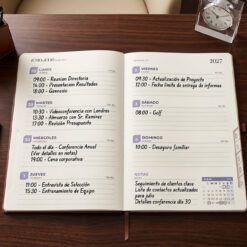 LUNES
09:00 - Reunion Directoria
14:00 - Presentacion Resultados
18:00 - Gimnasio
MARTES
10:30 - Videoconferencia con Londres
13:30 - Almuerzo con Sr. Ramirez
17:00 - Revisión Presupuesto
MIÉRCOLES
Todo el día - Conferencia Anual
(Ver detalles en notas)
19:00 - Cena corporativa
JUEVES
11:00 - Entrevista de Selección
15:30 - Entrenamiento de Equipo
2027
VIERNES
09:30 - Actualización de Proyecto
12:00 - Fecha límite de entrega de informes
SÁBADO
08:00 - Golf
DOMINGO
10:00 - Desayuno familiar
NOTAS
Seguimiento de clientes clave
Lista de contactos actualizados
para julio
Detalles conferencia día 30